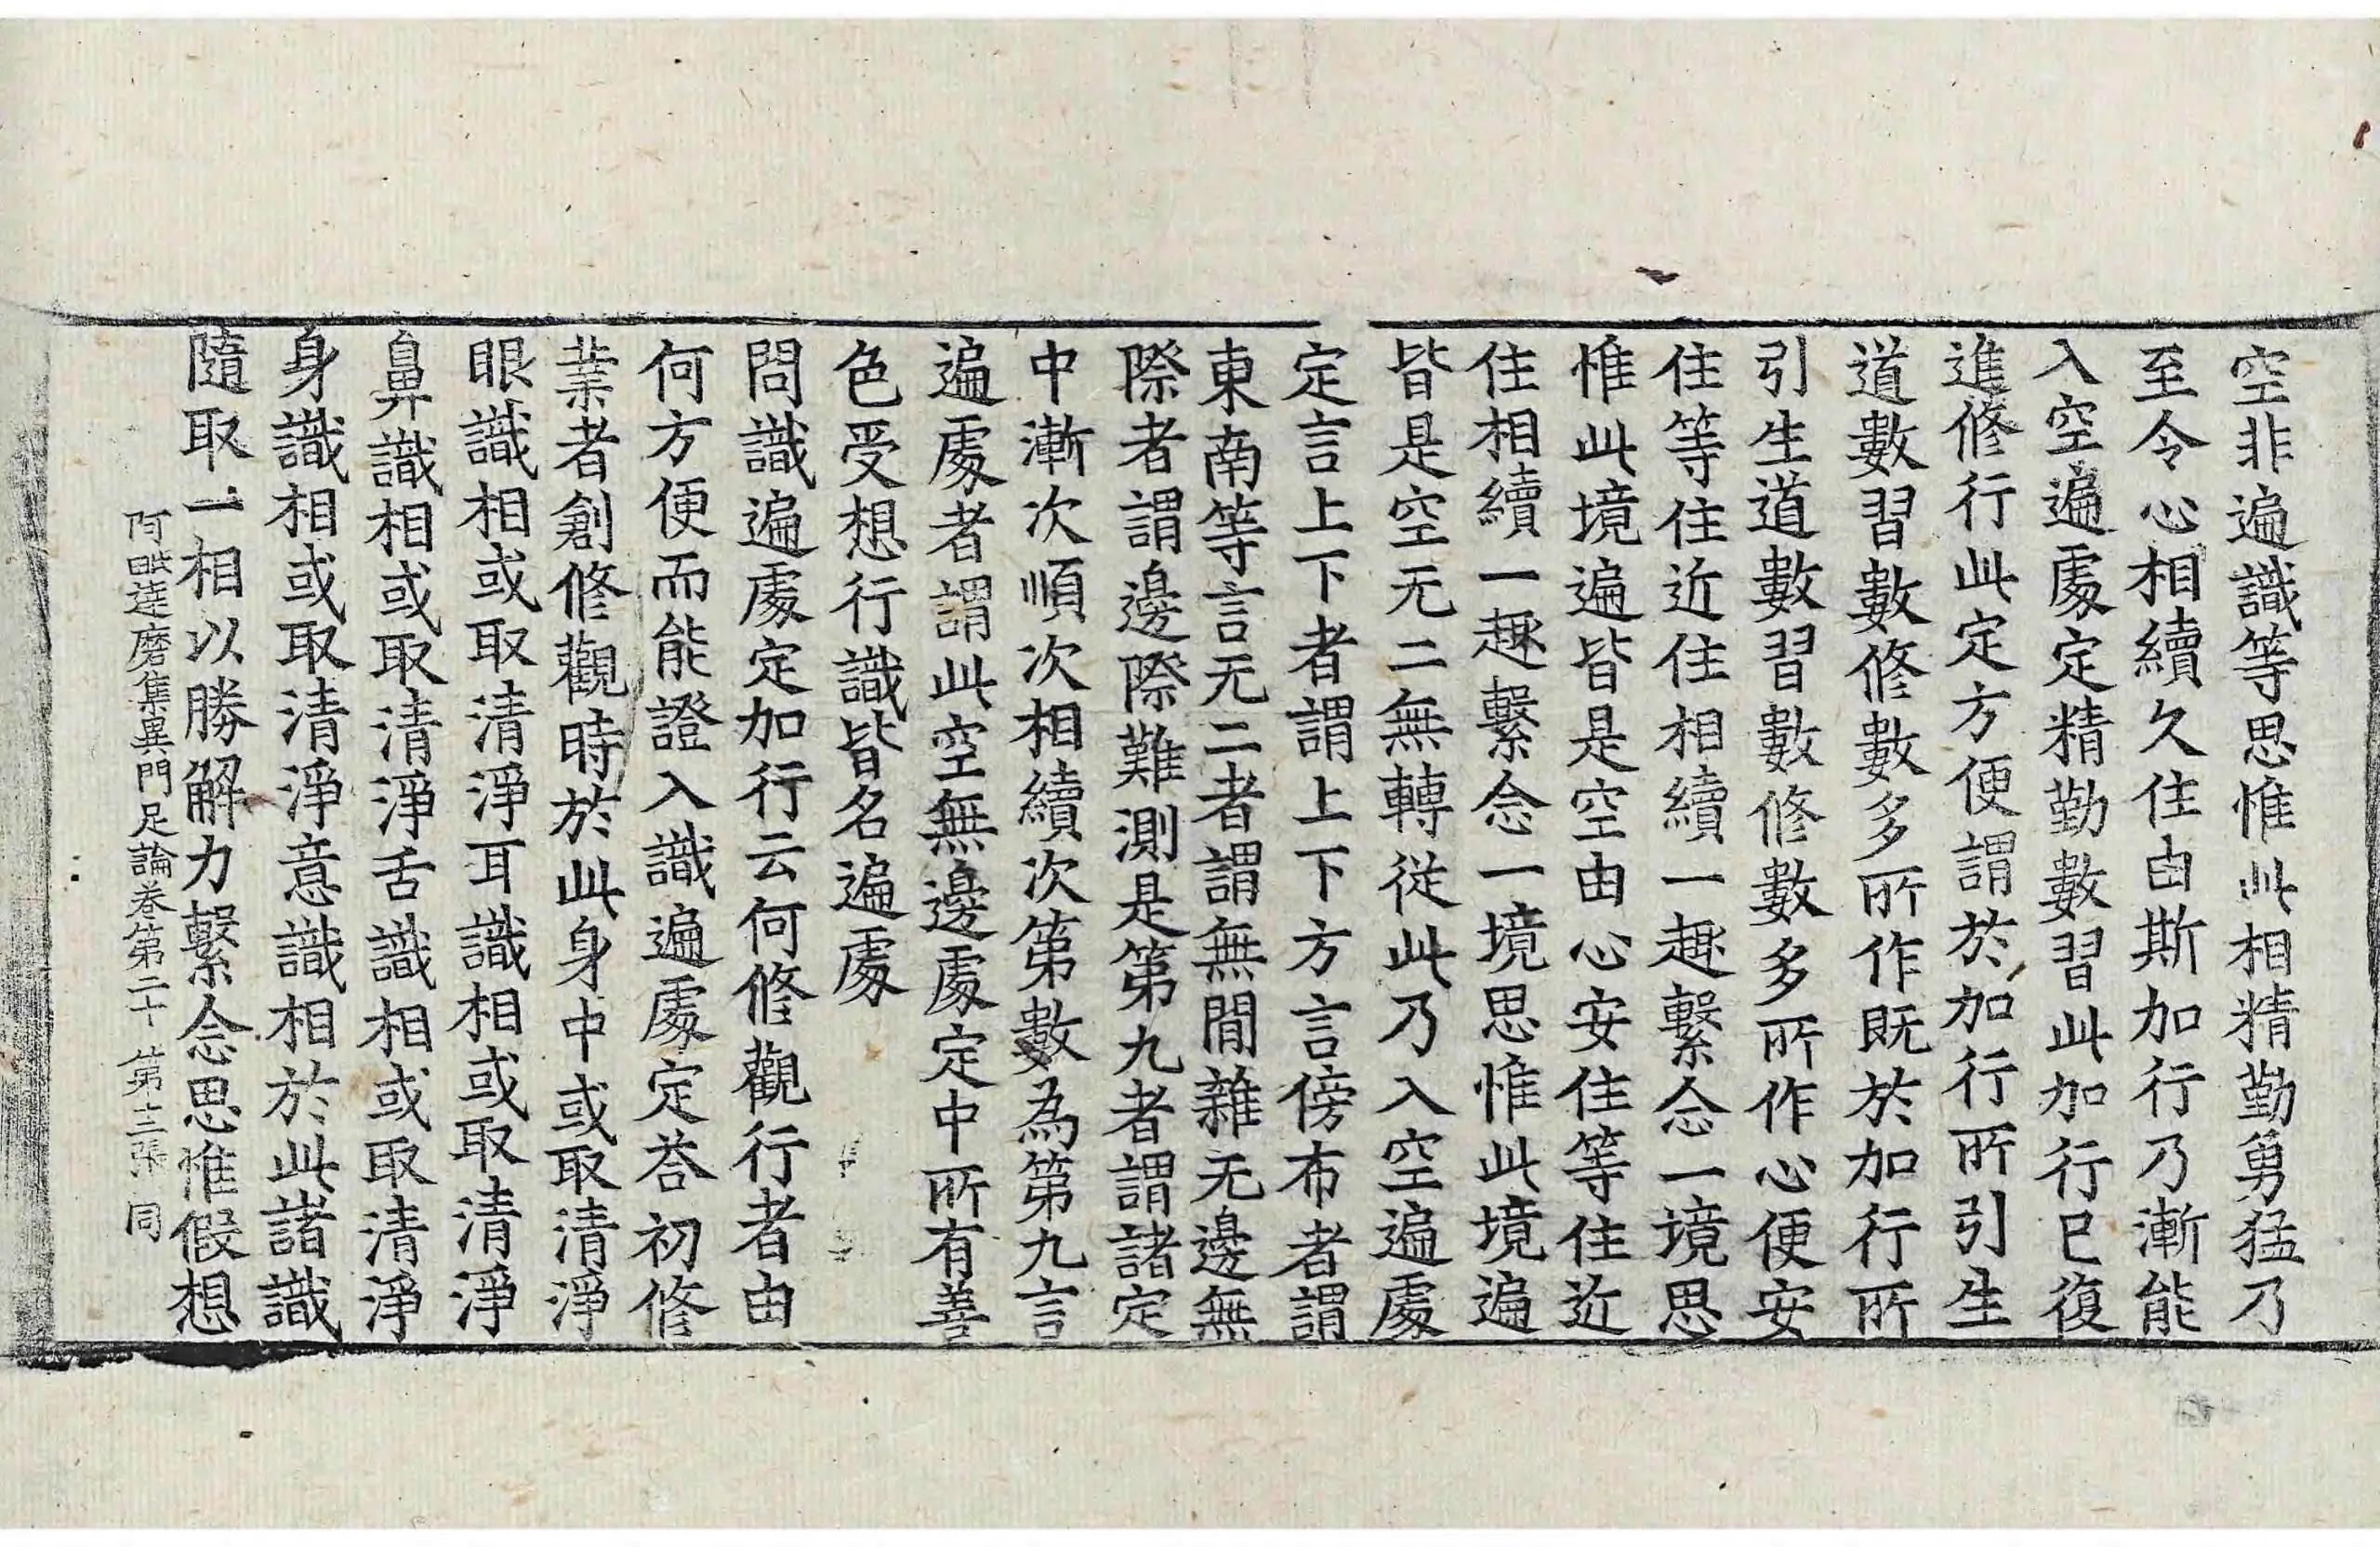 空非遍識等思惟此相精勤勇猛乃
至令心相續久住由斯加行乃漸能
入空遍處定精勤數習此加行已復
進修行此定方便謂於加行所引生
道數習數修數多所作既於加行所
引生道數習數修數多所作心便安
住等住近住相續一趣繫念一境思
惟此境遍皆是空由心安住等住近
住相續一趣繫念一境思惟此境遍
皆是空无二無轉從此乃入空遍處
定言上下者謂上下方言傍布者謂
東南等言无二者謂無閒雜无邊無
際者謂邊際難測是第九者謂諸定
中漸次順次相續次第數為第九言
遍處者謂此空無邊處定中所有善
色受想行識皆名遍處
問識遍處定加行云何修觀行者由
何方便而能證入識遍處定荅初修
業者創修觀時於此身中或取清淨
眼識相或取清淨耳識相或取清淨
鼻識相或取清淨舌識相或取清淨
身識相或取清淨意識相於此諸識
隨取一相以勝解力繫念思惟假想
阿毗達磨集異門足論卷第二十 第三張 同